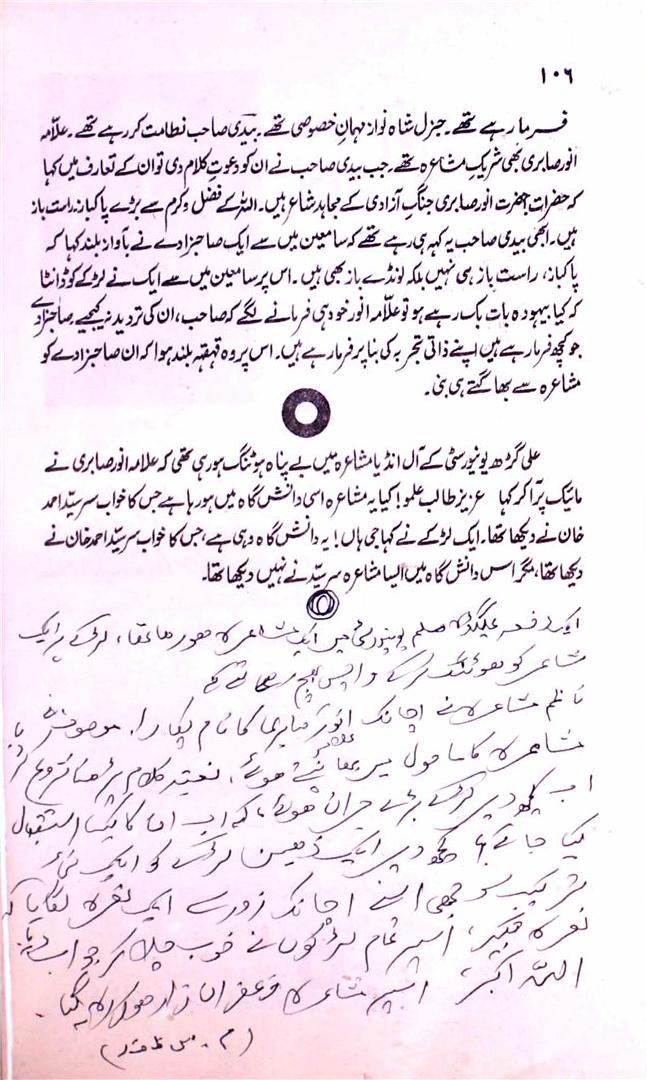 ۱۰۶
فرما رہے تھے۔ جنرل شاہ نواز مہمانِ خصوصی تھے۔ بیدی صاحب نظامت کر رہے تھے۔ علاّمہ
انور صابری بھی شریکِ مشاعرہ تھے۔ جب بیدی صاحب نے ان کو دعوتِ کلام دی تو ان کے تعارف میں کہا
کہ حضرات! حضرت انور صابری جنگِ آزادی کے مجاہد شاعر ہیں۔ اللہ کے فضل و کرم سے بڑے پاکباز، راست باز
ہیں۔ ابھی بیدی صاحب یہ کہہ ہی رہے تھے کہ سامعین میں سے ایک صاحبزادے نے بآوازِ بلند کہا کہ
پاکباز، راست باز ہی نہیں بلکہ لونڈے باز بھی ہیں۔ اس پر سامعین میں سے ایک نے لڑکے کو ڈانٹا
کہ کیا بیہودہ بات بک رہے ہو تو علاّمہ انور خود ہی فرمانے لگے کہ صاحب، ان کی تردید نہ کیجیے۔ صاحبزادے
جو کچھ فرما رہے ہیں اپنے ذاتی تجربہ کی بنا پر فرما رہے ہیں۔ اس پر وہ قہقہہ بلند ہوا کہ ان صاحبزادے کو
مشاعرہ سے بھاگتے ہی بنی۔
علی گڑھ یونیورسٹی کے آل انڈیا مشاعرہ میں بے پناہ ہوٹنگ ہو رہی تھی کہ علامہ انور صابری نے
مائیک پر آ کر کہا عزیز طالب علمو! کیا یہ مشاعرہ اسی دانش گاہ میں ہو رہا ہے جس کا خواب سرسیّد احمد
خان نے دیکھا تھا۔ ایک لڑکے نے کہا جی ہاں! یہ دانش گاہ وہی ہے، جس کا خواب سرسیّد احمد خان نے
دیکھا تھا، مگر اس دانش گاہ میں ایسا مشاعرہ سرسیّد نے نہیں دیکھا تھا۔
ایک دفعہ علیگڈھ مسلم یونیورسٹی میں ایک مشاعرہ ہو رہا تھا، لڑکے ہر ایک
شاعر کو ہوٹنگ کرکے واپس بھیج رہے تھے
ناظم مشاعرہ نے اچانک انور صابری کا نام پکارا، موصوف نے
مشاعرہ کا ماحول بھانپتے ہوئے، نعتیہ کلام پڑھنا شروع کر دیا
اب کچھ دیر لڑکے بڑے حیران ہوئے، کہ اب ان کا کیسا استقبال
کیا جائے؟ کچھ دیر ایک ذہین لڑکے کو ایک نئی
ترکیب سوجھی اسنے اچانک زور سے ایک نعرہ لگایا کہ
نعرہ تکبیر، اسپر تمام لڑکوں نے خوب چلا کر جواب دیا
اللہ اکبر، اسپر مشاعرہ زعفران زار ہو کر رہ گیا۔